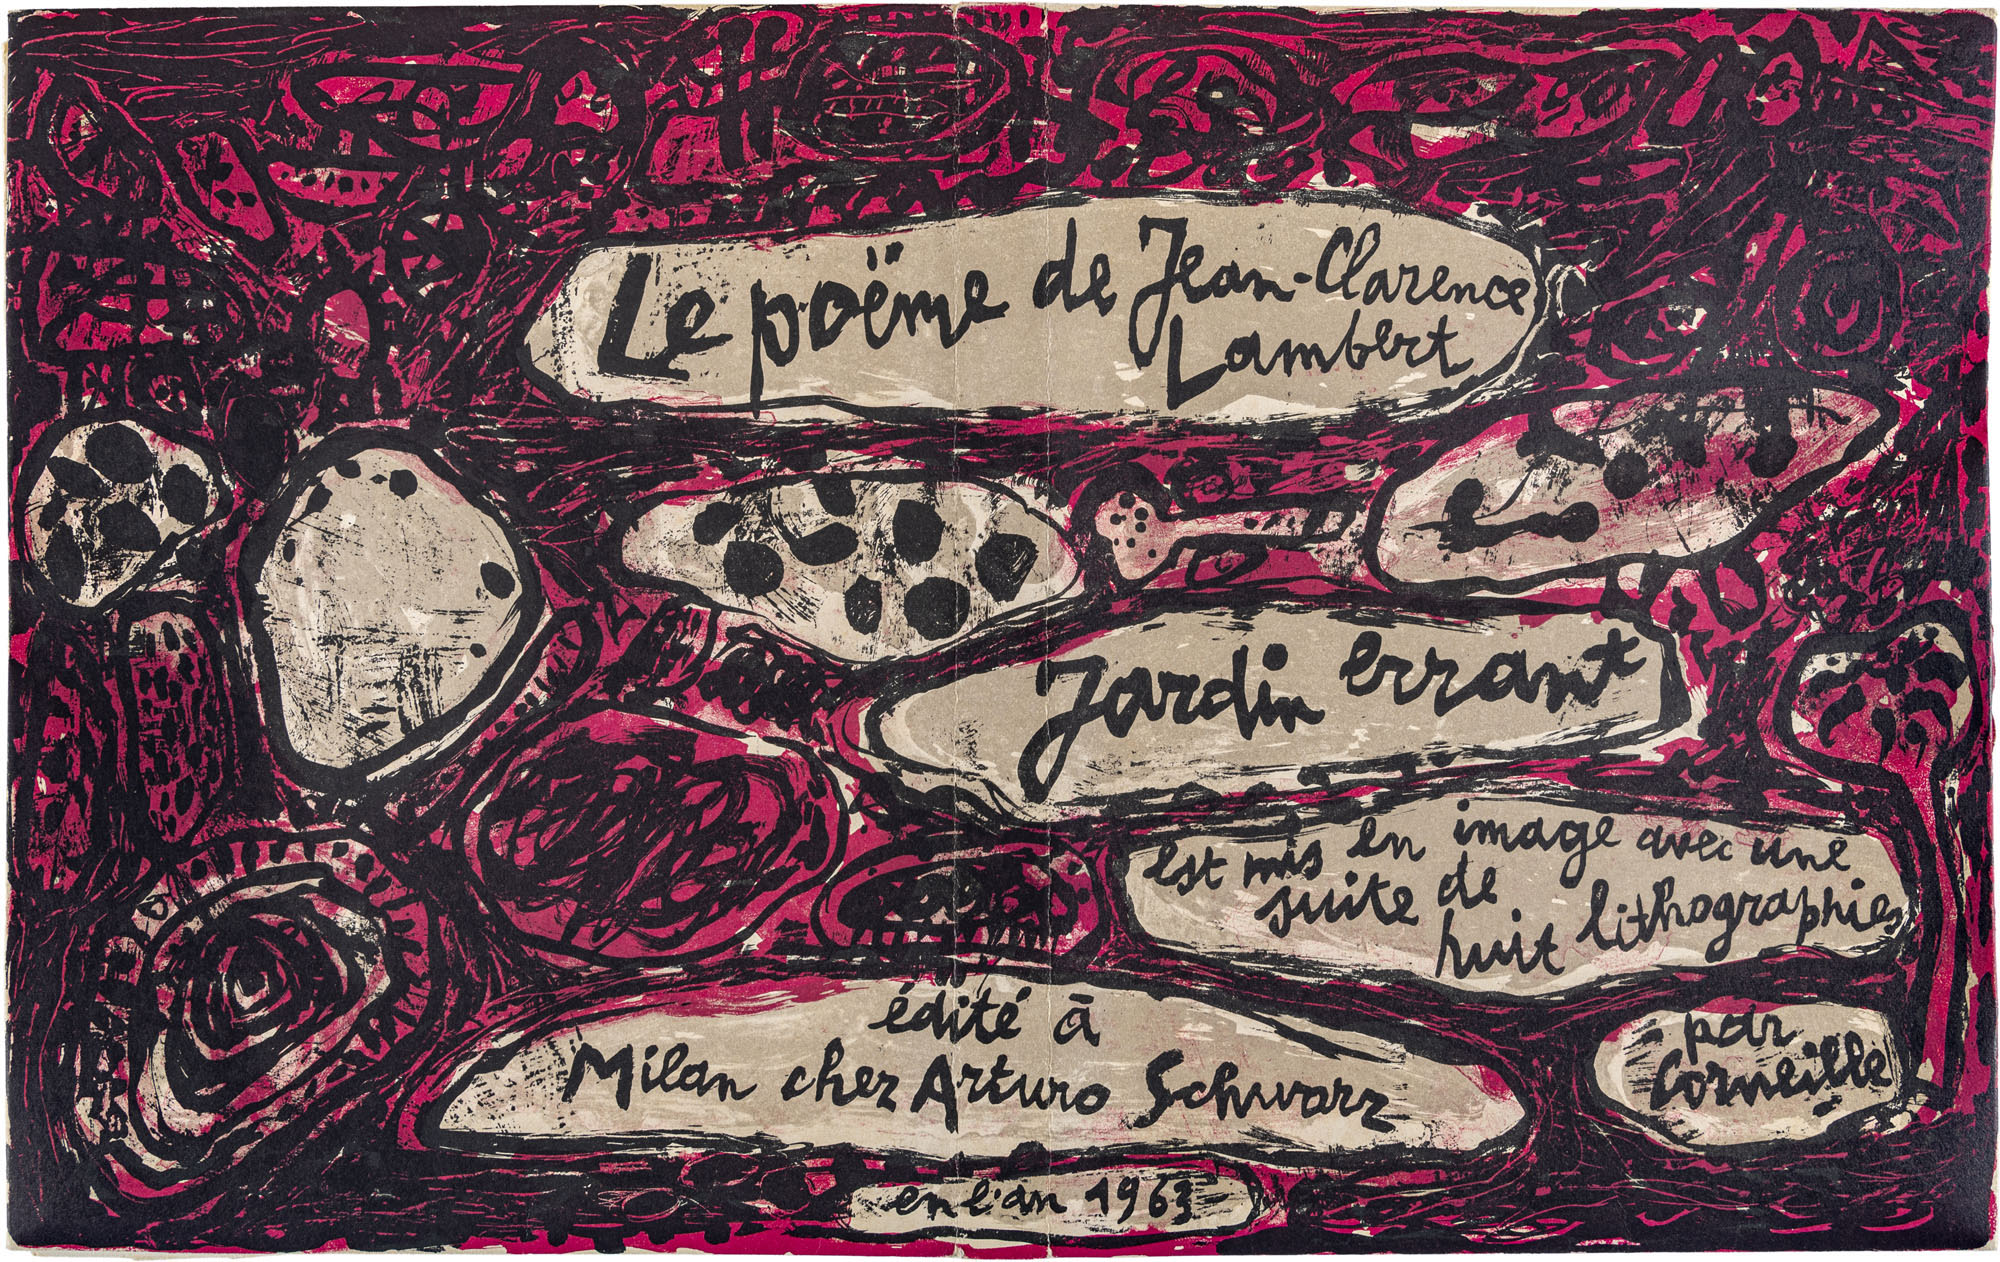 Le poëme de Jean-Clarence
Lambert
Jardin errant
est mis en image avec une
suite de
huit lithographies
par
Corneille
édité à
Milan chez Arturo Schwarz
en l'an 1963